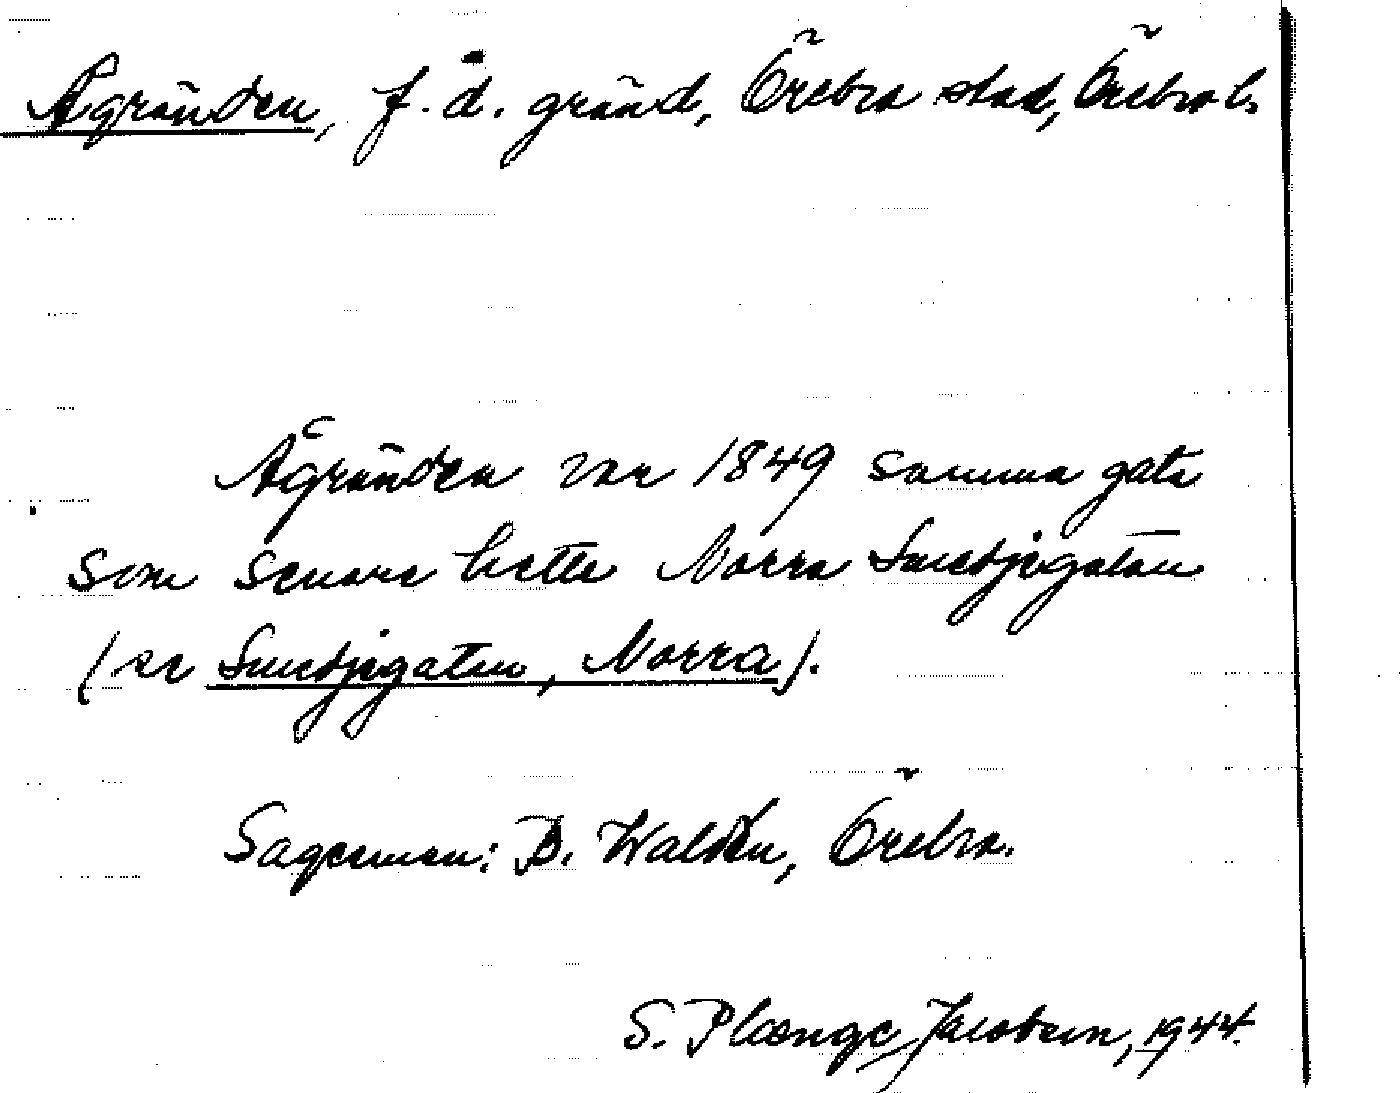 Ågränden, f.d. gränd, Örebro stad, Örebro l.
Ågränden var 1849 samma gata
som senare hette Norra Smedjegatan
(se Smedjegatan, Norra).
Sagesman: B. Waldén, Örebro.
S. Plænge Jacobson, 1944.